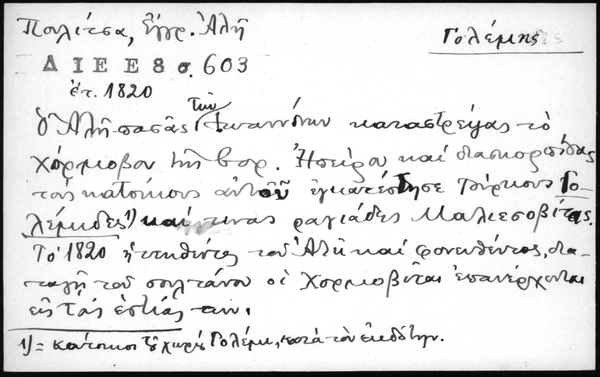 Πολίτσα, Ἔγγρ. Ἀλῆ
Γολέμης
ΔΙΕΕ 8 σ. 603
ἐτ. 1820
Ὁ Ἀλῆ πασᾶς τῶν Ἰωαννίνων καταστρέψας τὸ
Χόρμοβον τῆς βορ. Ἠπείρου καὶ διασκορπίσας
τοὺς κατοίκους αὐτοῦ ἐγκατέστησε Τούρκους Γο-
λέμιδες¹⁾ καί τινας ραγιάδες Μαλιεσοβίτας.
Τὸ 1820 ἡττηθέντος τοῦ Ἀλῆ καὶ φονευθέντος, δια-
ταγῇ τοῦ σουλτάνου οἱ Χορμοβῖται ἐπανέρχονται
εἰς τὰς ἑστίας των.
1) = κάτοικοι τοῦ χωρίου Γολέμι, κατὰ τὸν ἐκδότην.